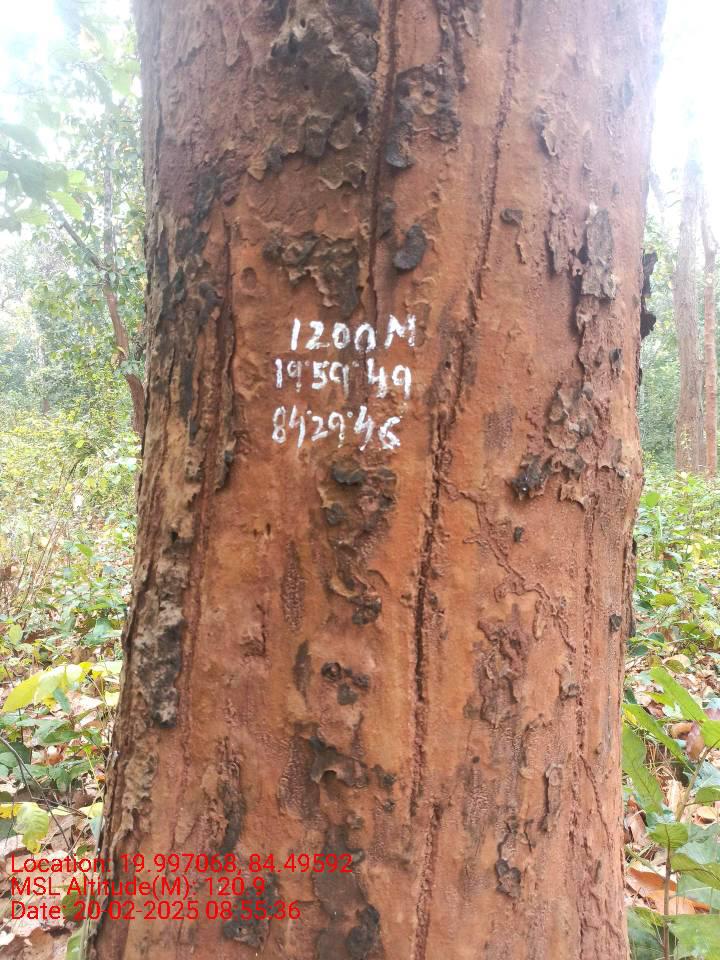 1200M
19°59'49
84°29'46
Location: 19.997068, 84.49592
MSL Altitude(M): 120.9
Date: 20-02-2025 08:55:36